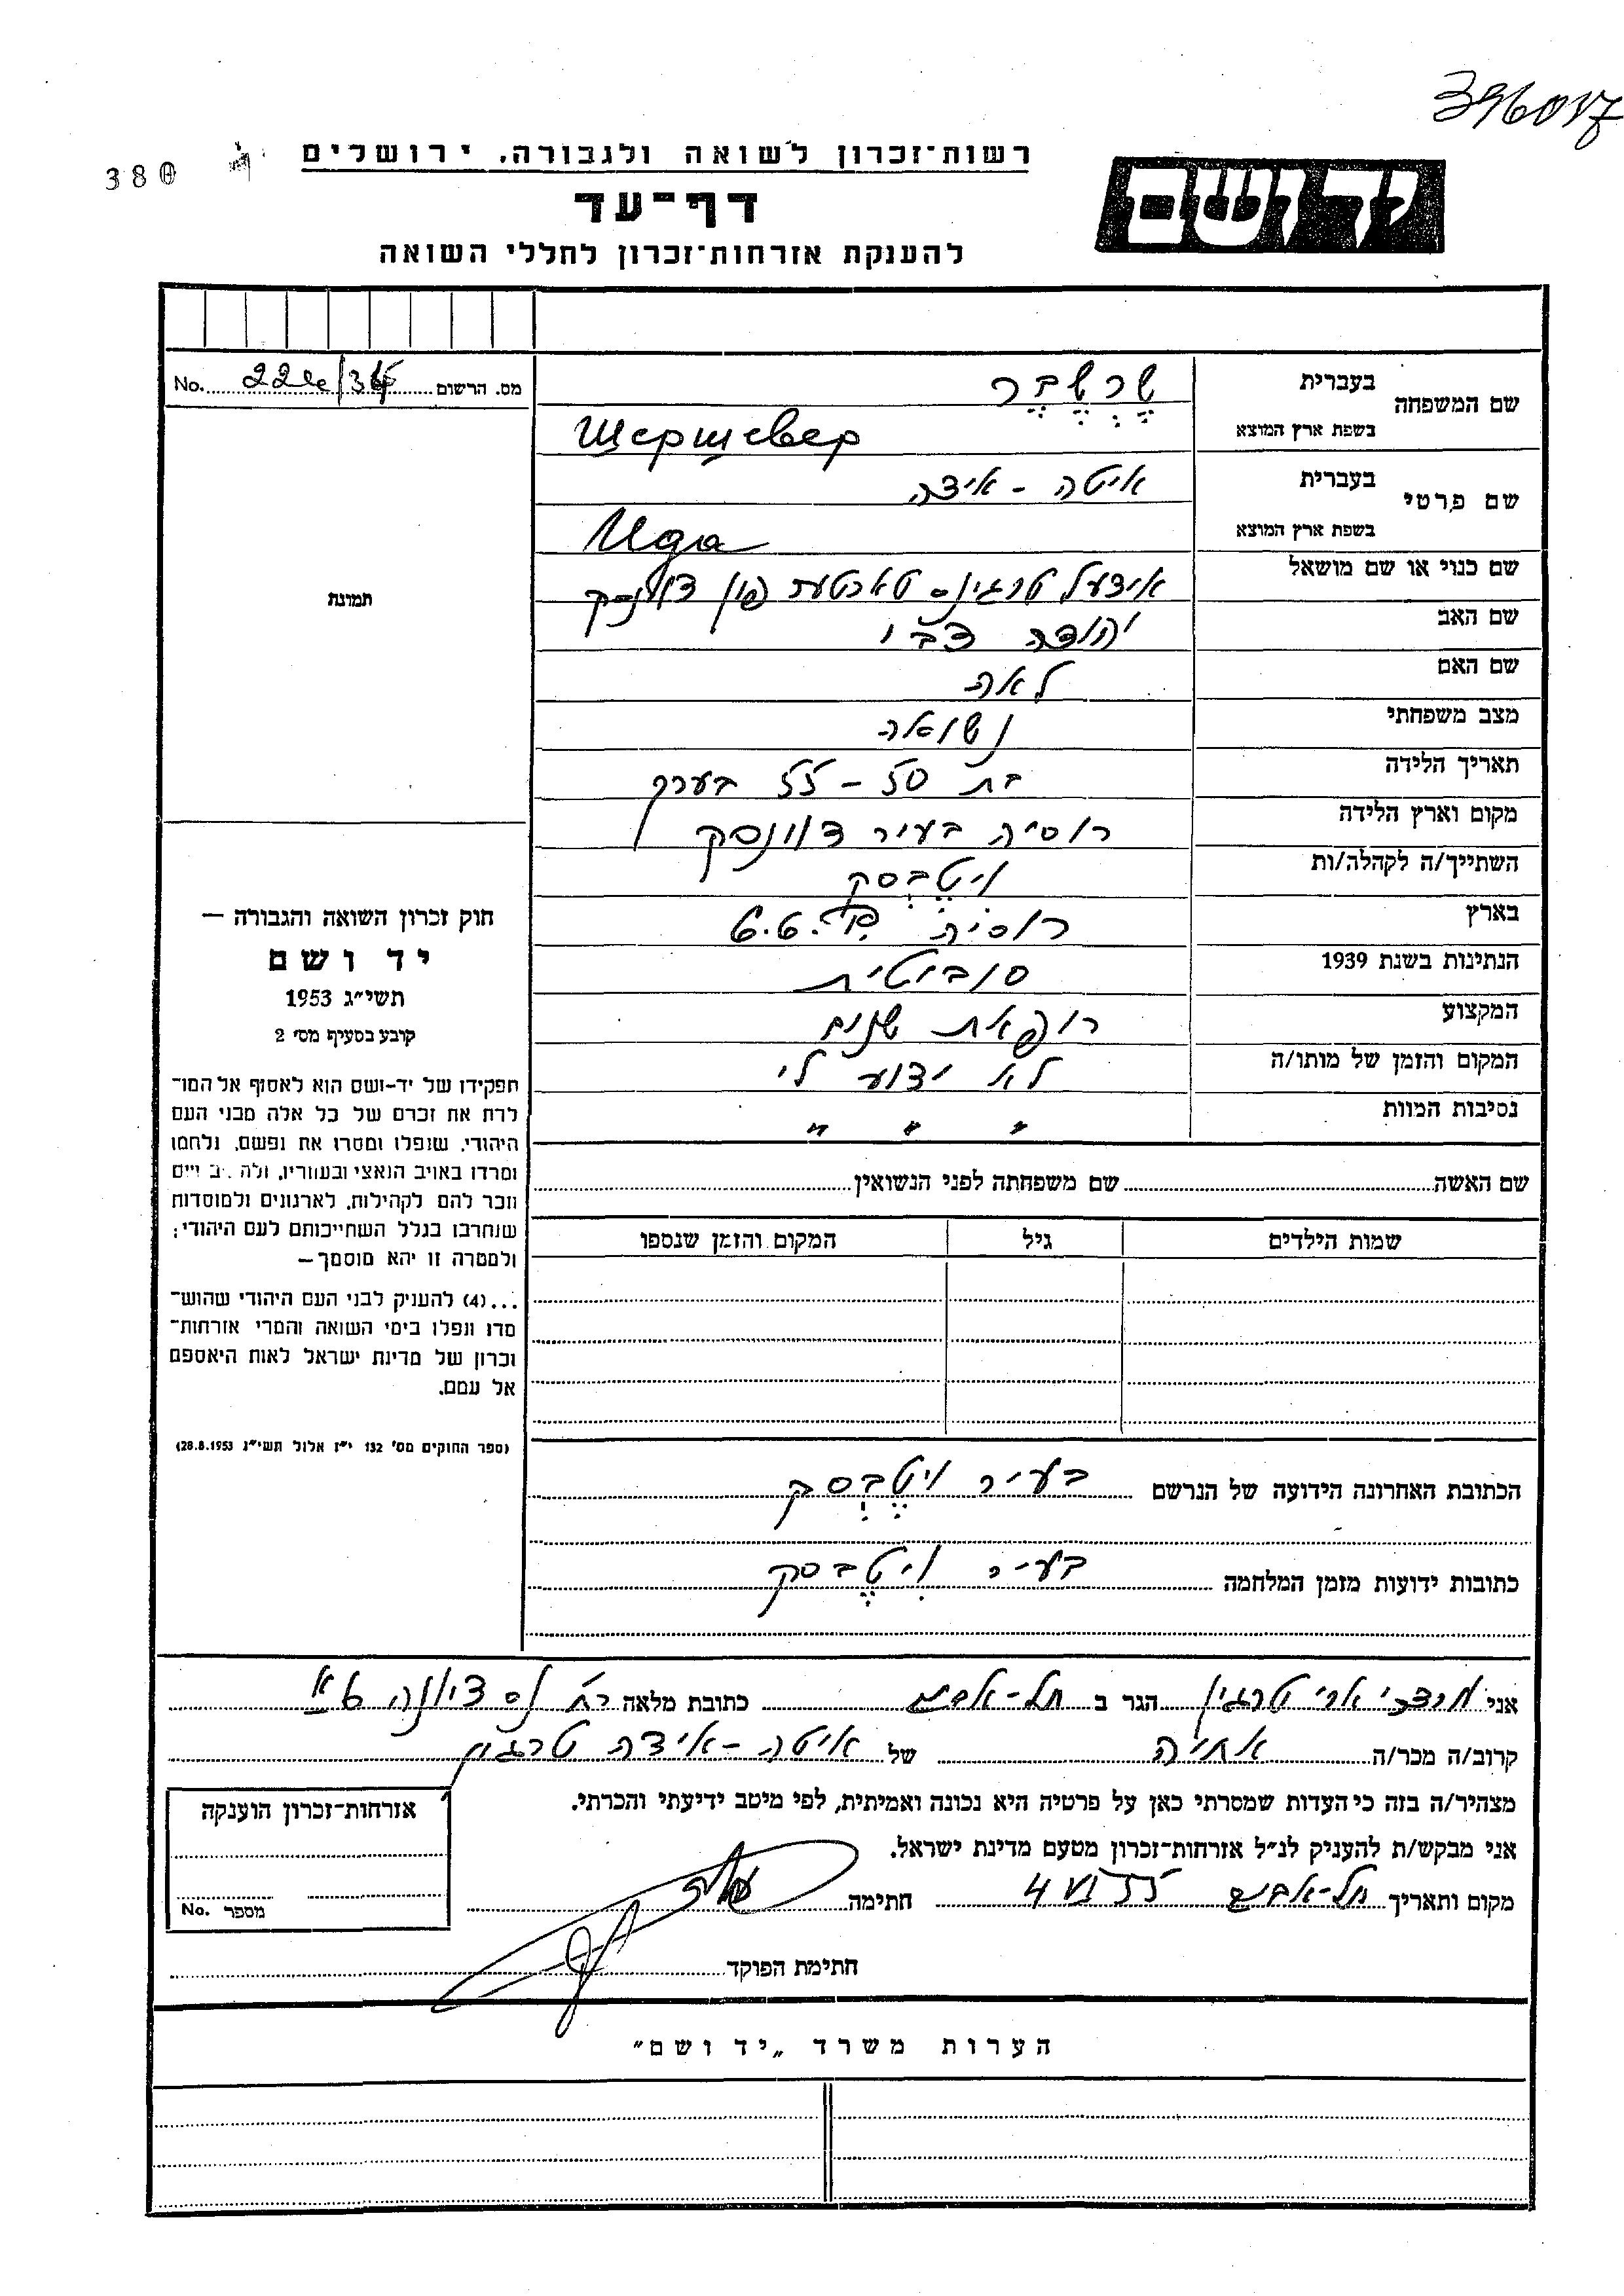 396017
380
רשות־זכרון לשואה ולגבורה, ירושלים
יד ושם
דף־עד
להענקת אזרחות־זכרון לחללי השואה
מס. הרשום No.
שם המשפחה
בעברית שֶרְשֶבֶר
בשפת ארץ המוצא Шершевер
שם פרטי
בעברית איטה - אידה
בשפת ארץ המוצא Ида
שם כנוי או שם מושאל אידעל טרגינס טאכטער פון דווינסק
שם האב יהודה צבי
שם האם לאה
מצב משפחתי נשואה
תאריך הלידה בת 50 - 55 בערך
מקום וארץ הלידה רוסיה בעיר דווינסק
השתייך/ה לקהלה/ות ויטֶבְסק
בארץ רוסיה
הנתינות בשנת 1939 סוביטית
המקצוע רופאת שנים
המקום והזמן של מותו/ה לא ידוע לי
נסיבות המוות " " "
תמונה
חוק זכרון השואה והגבורה —
יד ושם
תשי"ג 1953
קובע בסעיף מס' 2
תפקידו של יד-ושם הוא לאסוף אל המו־
לדת את זכרם של כל אלה מבני העם
היהודי, שנפלו ומסרו את נפשם, נלחמו
ומרדו באויב הנאצי ובעוזריו,
וזכר להם לקהילות, לארגונים ולמוסדות
שנחרבו בגלל השתייכותם לעם היהודי;
ולמטרה זו יהא מוסמך—
...(4) להעניק לבני העם היהודי שהוש־
מדו ונפלו בימי השואה והמרי אזרחות־
זכרון של מדינת ישראל לאות היאספם
אל עמם.
(ספר החוקים מס' 132 י"ז אלול תשי"ג 28.8.1953)
שם האשה שם משפחתה לפני הנשואין
שמות הילדים גיל המקום והזמן שנספו
הכתובת האחרונה הידועה של הנרשם בעיר ויטֶבְסק
כתובות ידועות מזמן המלחמה בעיר ויטֶבסק
אני מרדכי ארי טרגין הגר ב תל-אביב כתובת מלאה רח'
קרוב/ה מכר/ה אחיה של איטה-אידה טרגין
מצהיר/ה בזה כי העדות שמסרתי כאן על פרטיה היא נכונה ואמיתית, לפי מיטב ידיעתי והכרתי.
אני מבקש/ת להעניק לנ"ל אזרחות־זכרון מטעם מדינת ישראל.
מקום ותאריך תל-אביב חתימה
אזרחות־זכרון הוענקה
מספר No.
חתימת הפוקד
הערות משרד „יד ושם"